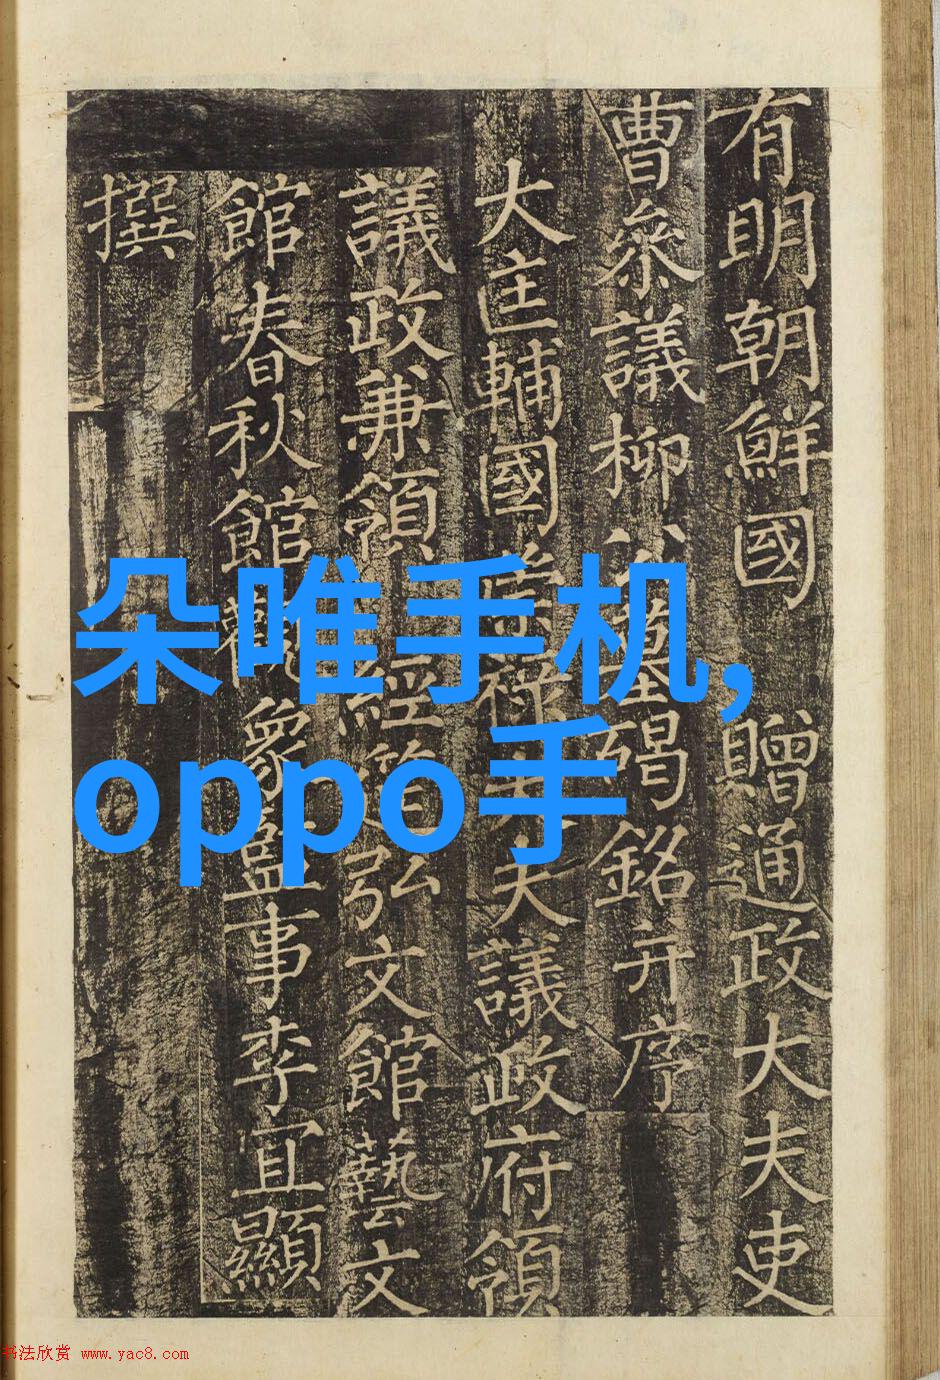 有明朝鮮國 贈通政大夫吏
曹叅議柳公墓碣銘并序
大匡輔國崇祿大夫議政府領
議政兼領經筵弘文館藝文
館春秋館觀象監事李宜顯
撰
朵唯手机,
oppo手
书法欣赏 www.yac8.com